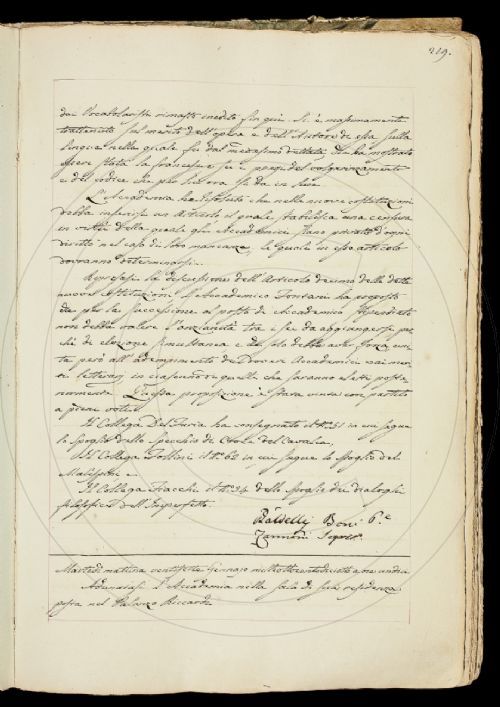 219.
dai Vocabolaristi rimasti inediti fin qui. Si è massimamente
trattenuto sul merito dell'opera e dell'Autore di essa sulla
lingua nella quale fu dal medesimo dettata che ha mostrato
essere stata la francese e poi del volgarizzamento
e del codice che per lui ora si dà in luce.
L'Accademia ha disposto che nelle nuove costituzioni
debba inserirsi un Articolo il quale stabilisca una censura
in virtù della quale gli Accademici siano privati d'ogni
diritto nel caso di loro mancanze, le quali in esso articolo
dovranno determinarsi.
Ripresasi la discussione dell'Articolo decimo delle dette
nuove Costituzioni l'Accademico Fontani ha proposto
che per la successione al posto di Accademico
non debba valere l'anzianità tra i
di elezione simultanea
però all'adempimento dei Doveri Accademici
letterarj in ciascuno di quelli che saranno eletti poste-
riormente. Questa proposizione è stata vinta con partito
a pieni voti.
Il Collega Del Furia ha consegnato il N.º 51 in cui segue
lo spoglio dello Specchio di Croce del Cavalca,
Il Collega Follini il N.º 62 in cui segue lo spoglio del
Malispini e
Il Collega Fiacchi il N.º 34 dello spoglio dei dialoghi
filosofici dell'Imperfetto.
Baldelli Boni P.e
Zannoni Segret.
Martedì mattina ventisette Gennaio milleottocentodiciotto a ore undici
Adunatasi l'Accademia nella sala di sua residenza
posta nel Palazzo Riccardi